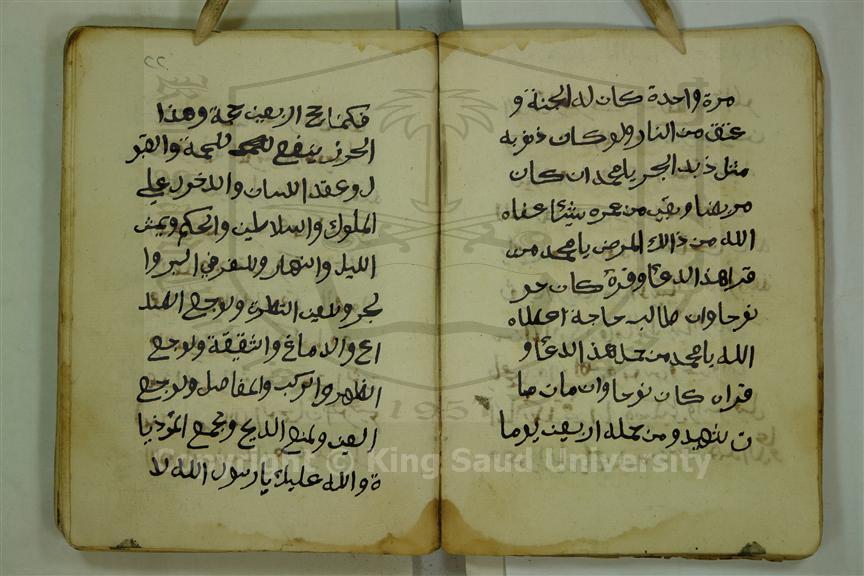 مرة واحدة كان له الجنة و
عتق من النار ولو كان ذنوبه
مثل زبد البحر يا محمد ان كان
مريضا وبقي من عمره شيئا عفاه
الله من ذالك المرض يا محمد من
قرا هذا الدعا وقرة كان
وان طالب حاجة اعطاه
الله يا محمد من حمل هذا الدعا و
قراه كان وان مات ما
ت شهيد ومن حمله اربعين يوما
٢٢
فكمن حج اربعين حجة وهذا
الحرز ينفع للمحبة والقبو
ل وعقد اللسان والدخول على
الملوك والسلاطين والحكم ويمش
الليل والنهار وللسفر في البر وا
لبحر وللعين النظرة ولوجع الصد
اع والدماغ والشقيقة ولوجع
الظهر والركب والمفاصل ولوجع
العين ولمنع الريح وجمع المؤذيا
ة والله عليك يا رسول الله لا
Copyright © King Saud University
1957